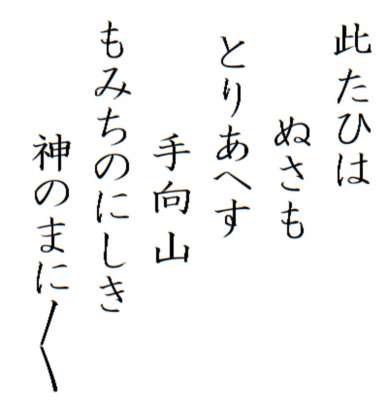 此たひは
ぬさも
とりあへす
手向山
もみちのにしき
神のまに〳〵